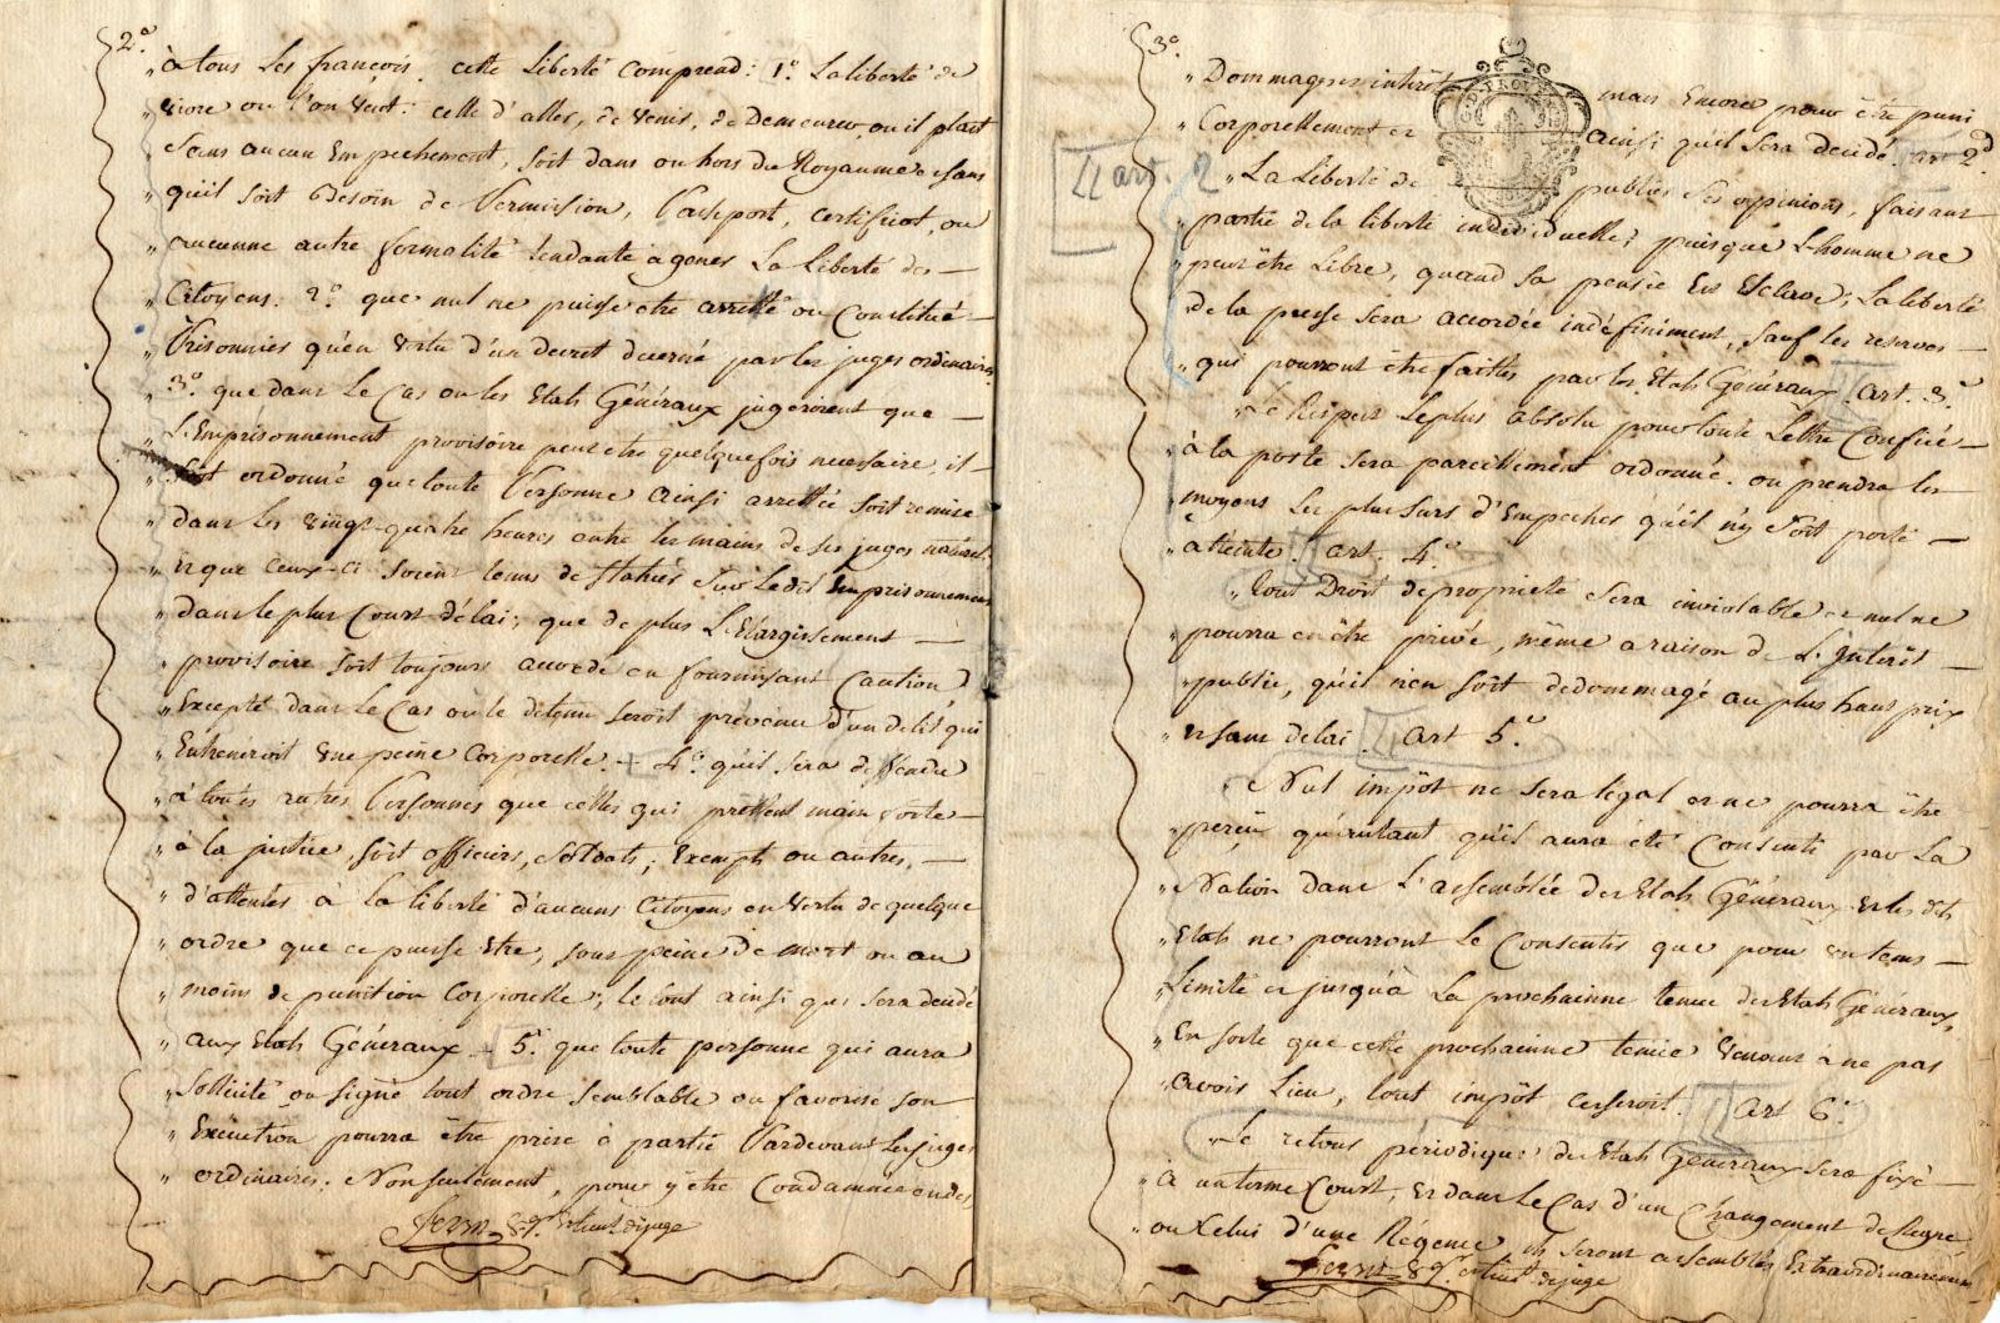 2°.
„ à tous les françois. cette Liberté comprend: 1°. La liberté de
„ vivre ou l'on veut: celle d'aller, de venir, de Demeurer ou il plait
„ sans aucun Empechement, soit dans ou hors du Royaume et sans
„ qu'il soit Besoin de Permission, Passeport, certificat, ou
„ aucunne autre formalité tendante a gener La Liberté des —
„ Citoyens. 2°. que nul ne puisse etre arretté ou Constitué —
„ Prisonnier qu'en vertu d'un Decret decerné par les juges ordinaires
„ 3°. que dans Le Cas ou les Etats Généraux jugeroient que —
„ L'Emprisonnement provisoire peut etre quelquefois necessaire, il —
„ soit ordonné que toute Personne ainsi arrettée soit remise
„ dans les vingt-quatre heures entre les mains de ses juges naturels
„ et que ceux-ci soient tenus de statuer sur Ledit Emprisonnement
„ dans le plus Court délai; que de plus L'Elargissement —
„ provisoire soit toujours accordé en fournissant Caution
„ Excepté dans Le Cas où le détenu seroit prévenu d'un delit qui
„ Entreneroit une peine Corporelle. + 4°. qu'il sera deffendu
„ à toutes autres Personnes que celles qui prettent main forte —
„ à la justice, soit officiers, soldats; Exempts ou autres, —
„ d'attenter à La liberté d'aucuns Citoyens en vertu de quelque
„ ordre que ce puisse Etre, sous peine de mort ou au
„ moins de punition Corporelle; le tout ainsi que sera decidé
„ aux Etats Généraux - 5°. que toute personne qui aura
„ Sollicité ou signé tout ordre semblable ou favorisé son
„ Execution pourra être prise à partie Pardevant Les juges
„ ordinaires; Non seulement, pour y être Condamnée en des
3°.
„ Dommages et intérêts mais Encore pour être puni
„ Corporellement et ainsi qu'il sera decidé. art 2d.
[[ art. 2
„ La Liberté de publier ses opinions, faisant
„ partie de la liberté individuelle; puisque L'homme ne
„ peut être Libre, quand sa pensée Est Esclave; La liberté
„ de la presse sera accordée indéfiniment, sauf les reserves —
„ qui pourront être faittes par les Etats Généraux. art. 3.e
„ Le Respect Le plus absolu pour toute Lettre Confiée —
„ à la poste sera pareillement ordonné. on prendra les
„ moyens Les plus surs d'Empecher qu'il n'y soit porté —
„ atteinte. art. 4.e
„ Tout Droit de propriété sera inviolable et nul ne
„ pourra en être privé, même a raison de L'Interêt —
„ public, qu'il n'en soit dedommagé au plus haut prix
„ et sans delai. art 5.e
„ Nul impôt ne sera légal et ne pourra être
„ perçu qu'autant qu'il aura été Consenti par La
„ Nation dans L'assemblée des Etats Généraux et les dits
„ Etats ne pourront Le Consentir que pour un tems —
„ Limité et jusqu'à La prochainne tenue des Etats Généraux,
„ En sorte que cette prochainne tenue venant à ne pas
„ avoir Lieu, tout impôt cesseroit. art 6.e
„ Le retour périodique des Etats Généraux sera fixé —
„ A un terme Court; Et dans Le Cas d'un Changement de Regne
„ ou Celui d'une Régence, ils seront assemblés Extraordinairement